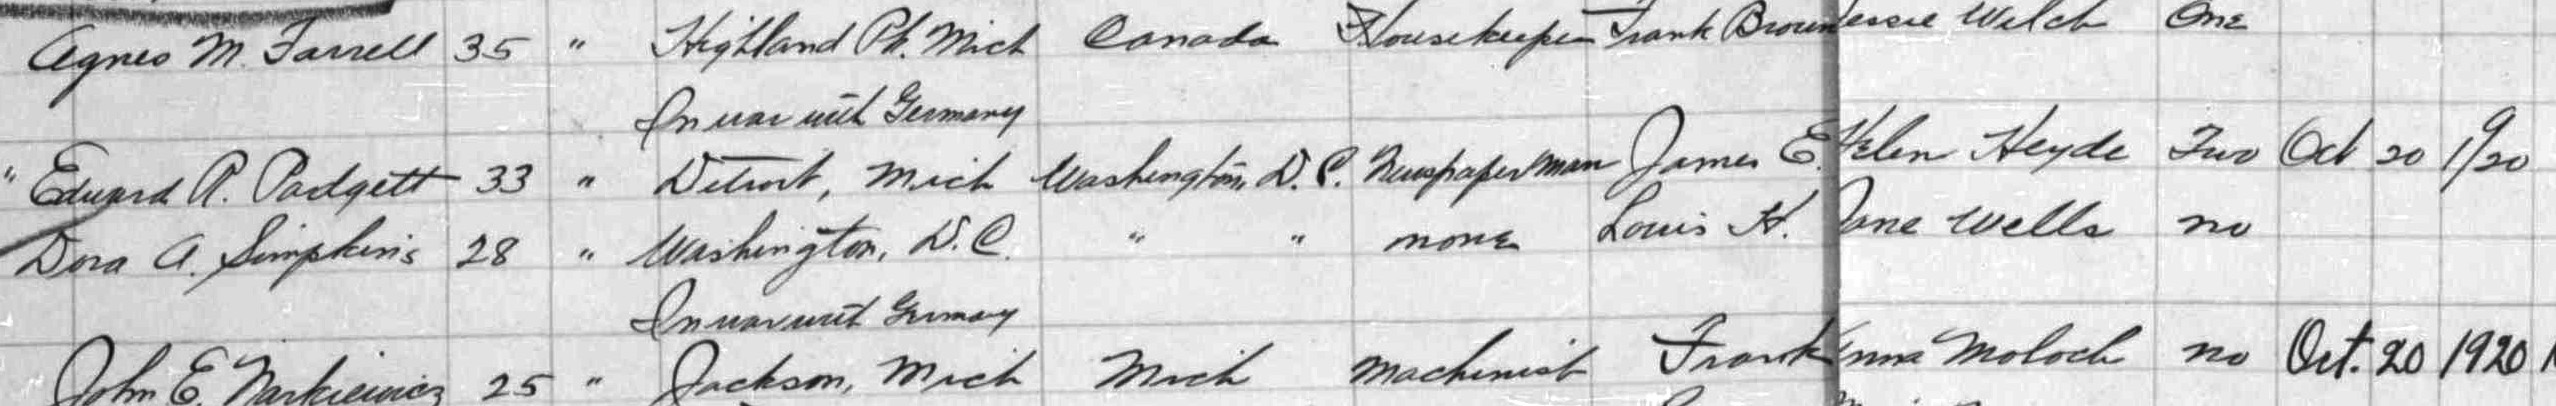 Agnes M. Farrell 35 " Highland Pk. Mich Canada Housekeeper Frank Brown essie Welch One
In war with Germany
" Edward R. Padgett 33 " Detroit, Mich Washington, D.C. Newspaper man James E. Helen Heyde Two Oct 20 1920
Dora A. Simpkins 28 " Washington, D.C. " " none Louis H. Jane Wells no
In war with Germany
John E. Narkiewicz 25 " Jackson, Mich Mich Machinist Frank nna Moloch no Oct. 20 1920